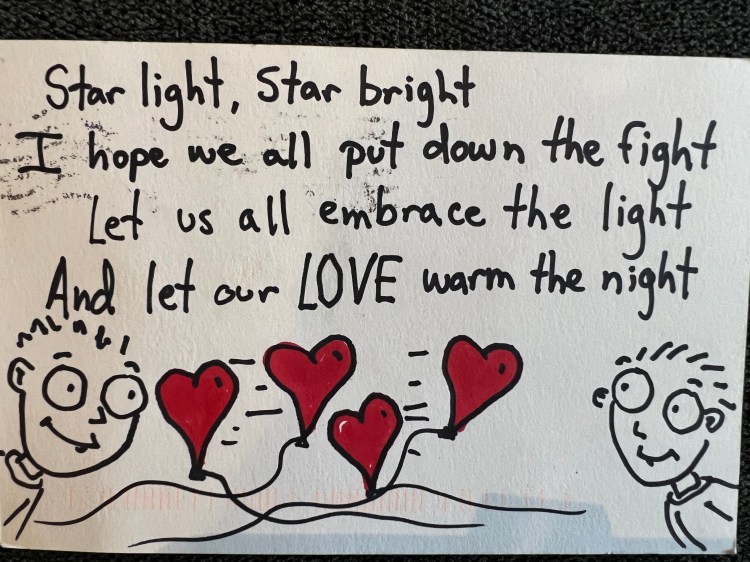 Star light, Star bright
I hope we all put down the fight
Let us all embrace the light
And let our LOVE warm the night